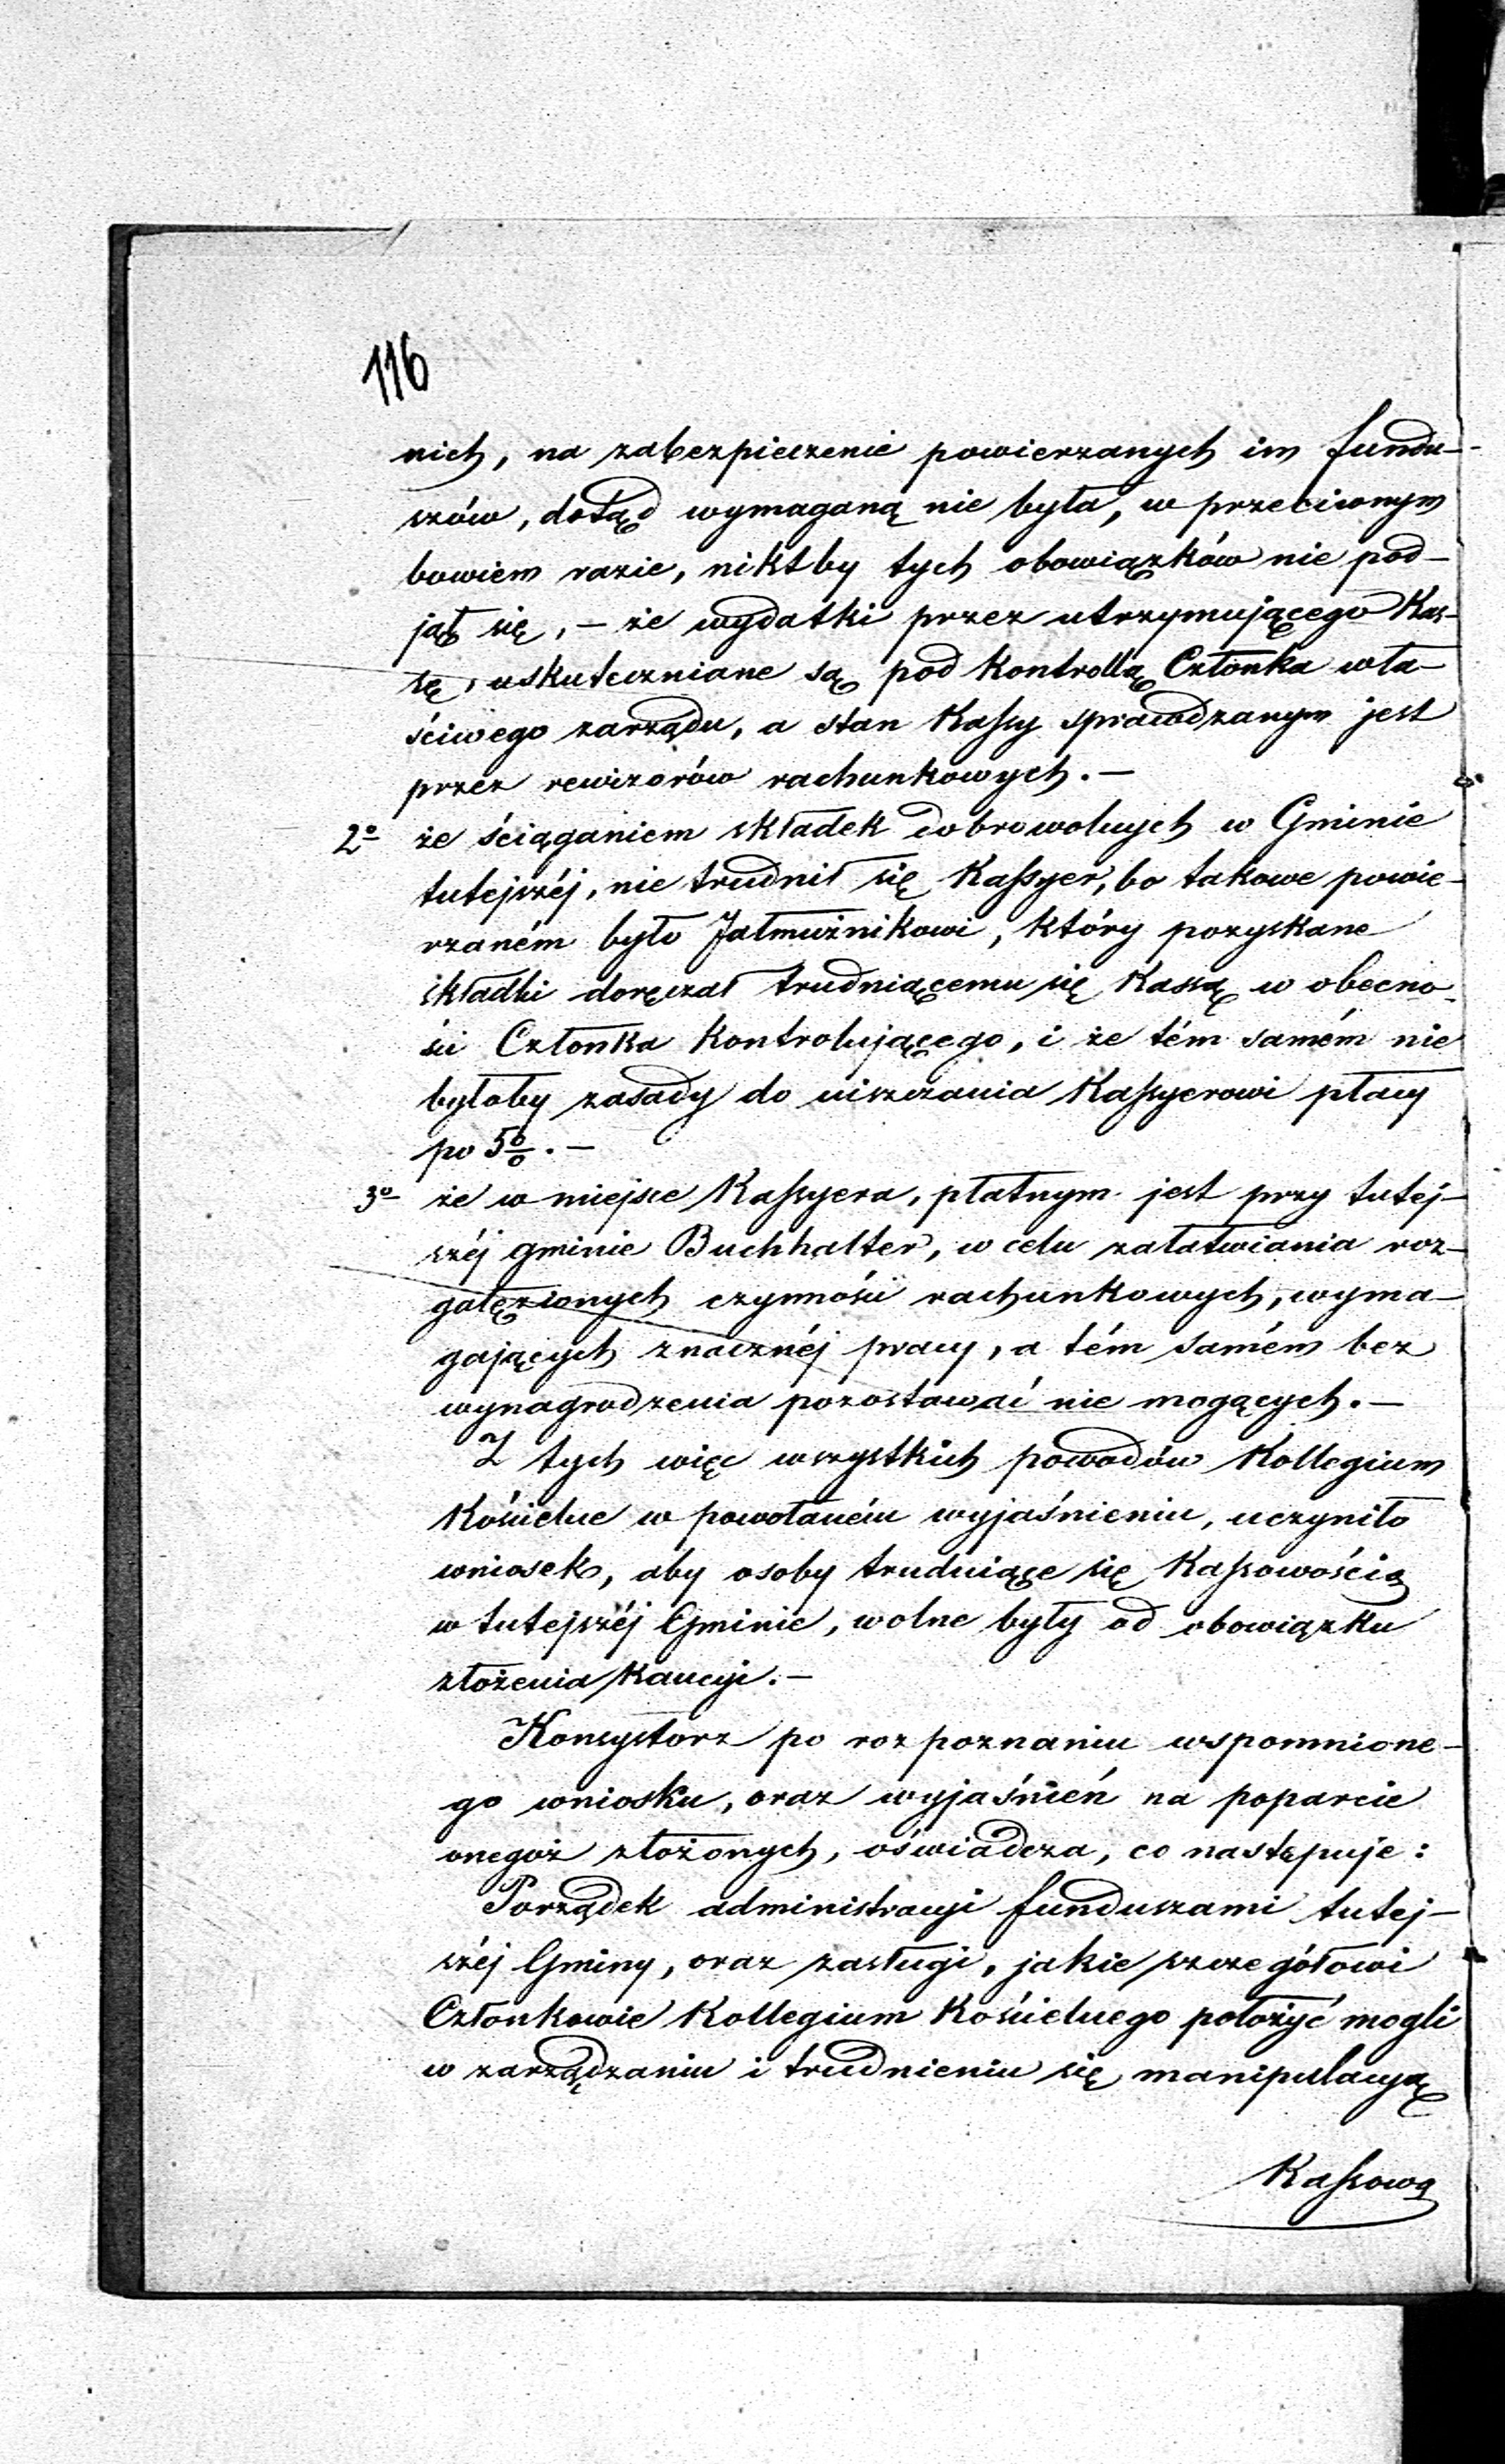 116
nich, na zabezpieczenie powierzanych im fundu-
szów, dotąd wymaganą nie była, w przeciwnym
bowiem razie, niktby tych obowiązków nie pod-
jął się, – że wydatki przez utrzymującego Kas-
sę, uskuteczniane są pod kontrollą Członka wła-
ściwego zarządu, a stan Kassy sprawdzanym jest
przez rewizorów rachunkowych. –
2o że ściąganiem składek dobrowolnych w Gminie
tutejszéj, nie trudnił się Kassyer, bo takowe powie-
rzaném było Jałmużnikowi, który pozyskane
składki doręczał trudniącemu się Kassą w obecno-
ści Członka Kontrolującego, i że tém samém nie
byłoby zasady do uiszczania Kassyerowi płacy
po 5%. –
3o że w miejsce Kassyera, płatnym jest przy tutej-
széj gminie Buchhalter, w celu załatwiania roz-
gałęzionych czynności rachunkowych, wyma-
gających znacznéj pracy, a tém samém bez
wynagrodzenia pozostawać nie mogących. –
Z tych więc wszystkich powodów Kollegium
Kościelne w powołaném wyjaśnieniu, uczyniło
wniosek, aby osoby trudniące się Kassowością
w tutejszéj Gminie, wolne były od obowiązku
złożenia Kaucyi. –
Konsystorz po rozpoznaniu wspomnione-
go wniosku, oraz wyjaśnień na poparcie
onegoż złożonych, oświadcza, co następuje:
Porządek administracyi funduszami tutej-
széj Gminy, oraz zasługi, jakie szczegółowi
Członkowie Kollegium Kościelnego położyć mogli
w zarządzaniu i trudnieniu się manipulacyą
Kassową